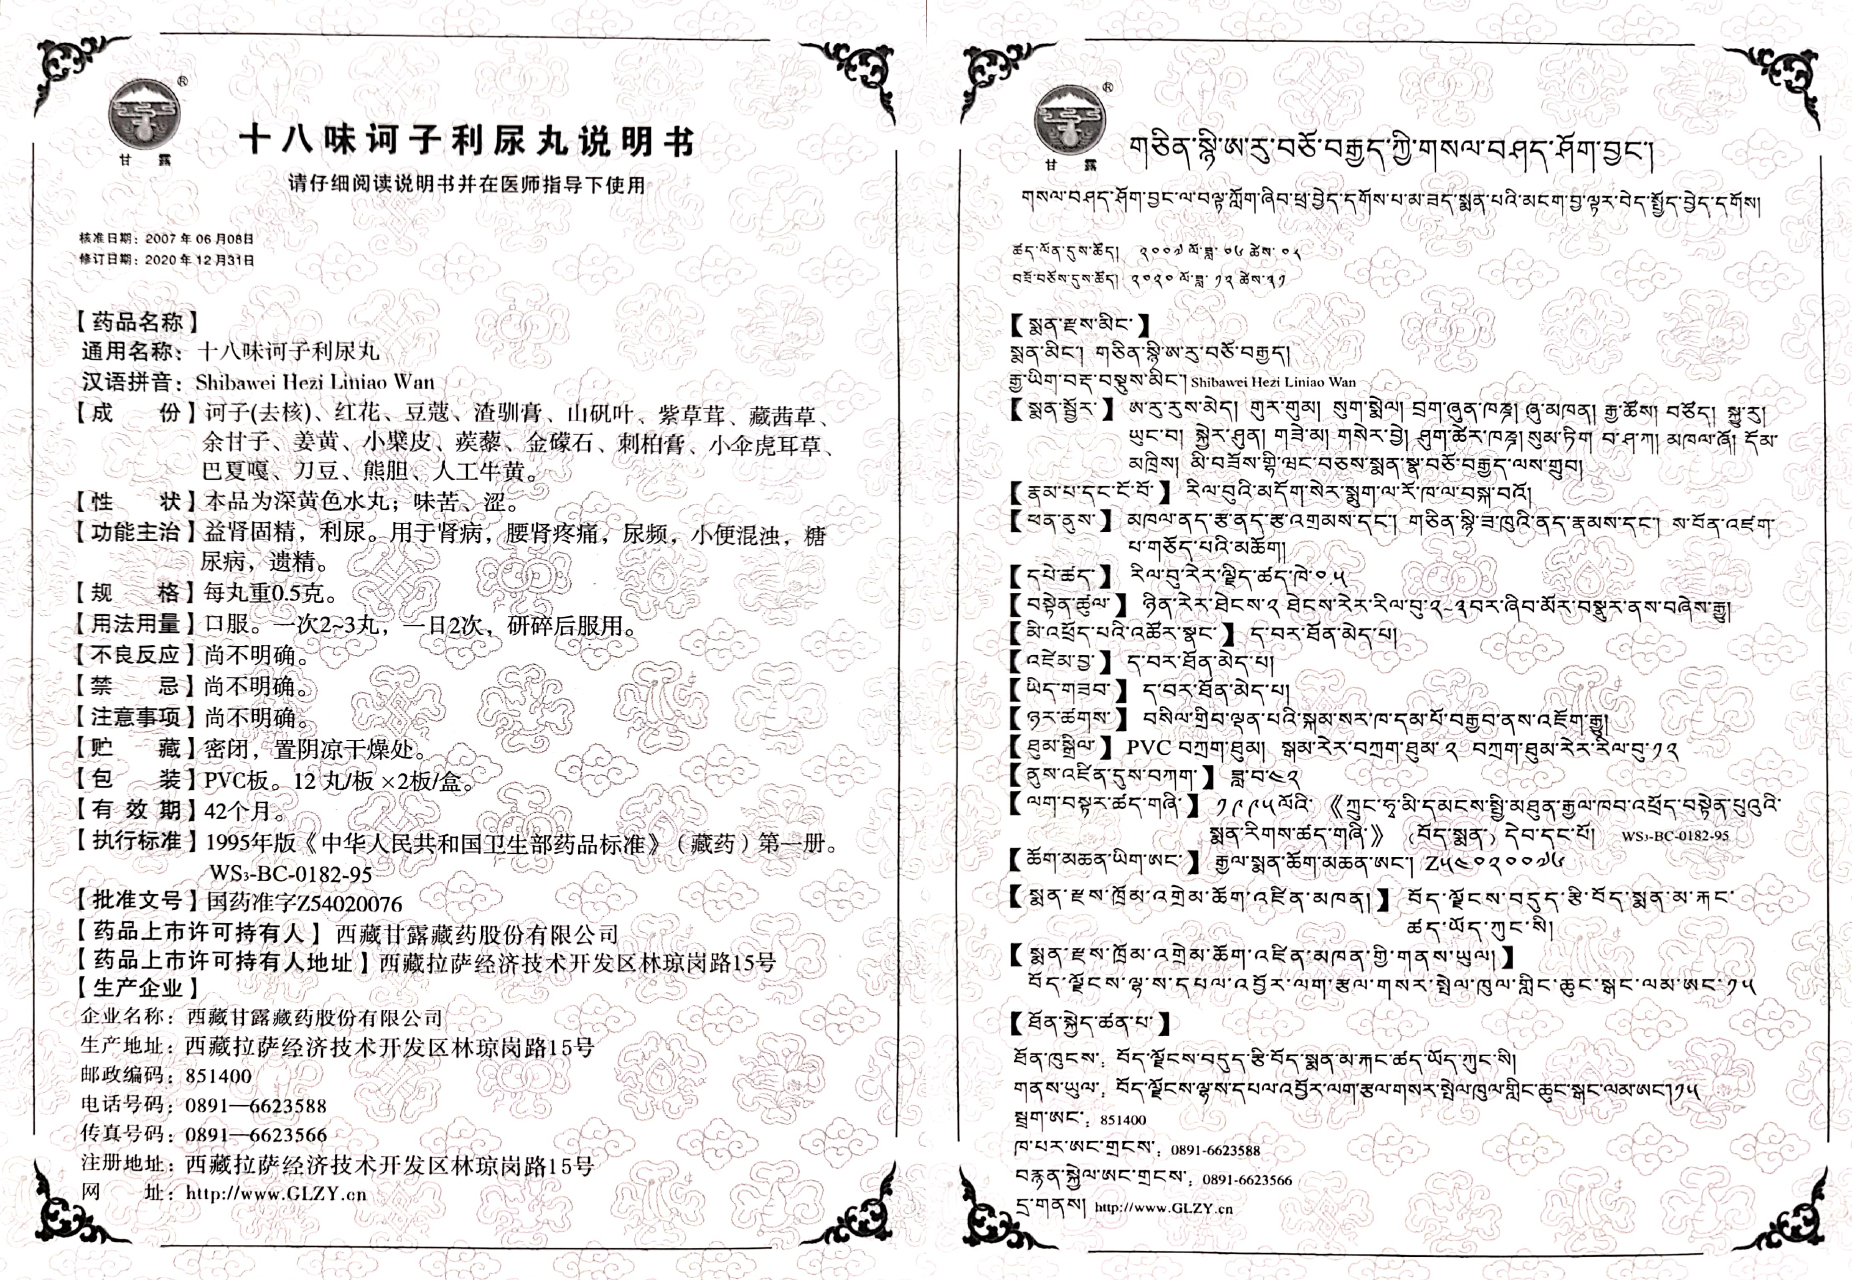 甘露
®
十八味诃子利尿丸说明书
请仔细阅读说明书并在医师指导下使用
核准日期：2007年06月08日
修订日期：2020年12月31日
【药品名称】
通用名称：十八味诃子利尿丸
汉语拼音：Shibawei Hezi Liniao Wan
【成　　份】诃子(去核)、红花、豆蔻、渣驯膏、山矾叶、紫草茸、藏茜草、
余甘子、姜黄、小檗皮、蒺藜、金礞石、刺柏膏、小伞虎耳草、
巴夏嘎、刀豆、熊胆、人工牛黄。
【性　　状】本品为深黄色水丸；味苦、涩。
【功能主治】益肾固精，利尿。用于肾病，腰肾疼痛，尿频，小便混浊，糖
尿病，遗精。
【规　　格】每丸重0.5克。
【用法用量】口服。一次2~3丸，一日2次，研碎后服用。
【不良反应】尚不明确。
【禁　　忌】尚不明确。
【注意事项】尚不明确。
【贮　　藏】密闭，置阴凉干燥处。
【包　　装】PVC板。12丸/板×2板/盒。
【有 效 期】42个月。
【执行标准】1995年版《中华人民共和国卫生部药品标准》（藏药）第一册。
WS₃-BC-0182-95
【批准文号】国药准字Z54020076
【药品上市许可持有人】西藏甘露藏药股份有限公司
【药品上市许可持有人地址】西藏拉萨经济技术开发区林琼岗路15号
【生产企业】
企业名称：西藏甘露藏药股份有限公司
生产地址：西藏拉萨经济技术开发区林琼岗路15号
邮政编码：851400
电话号码：0891—6623588
传真号码：0891—6623566
注册地址：西藏拉萨经济技术开发区林琼岗路15号
网　　址：http://www.GLZY.cn
甘露
®
གཅིན་སྙི་ཨ་རུ་བཅོ་བརྒྱད་ཀྱི་གསལ་བཤད་ཤོག་བྱང་།
གསལ་བཤད་ཤོག་བྱང་ལ་བལྟ་ཀློག་ཞིབ་ཕྲ་བྱེད་དགོས་པ་མ་ཟད་སྨན་པའི་མངག་བྱ་ལྟར་བེད་སྤྱོད་བྱེད་དགོས།
ཚད་ལོན་དུས་ཚོད། ༢༠༠༧ ལོ་ཟླ་ ༠༦ ཚེས་ ༠༨
བཟོ་བཅོས་དུས་ཚོད། ༢༠༢༠ ལོ་ཟླ་ ༡༢ ཚེས་༣༡
【སྨན་རྫས་མིང་】
སྨན་མིང་། གཅིན་སྙི་ཨ་རུ་བཅོ་བརྒྱད།
རྒྱ་ཡིག་བརྡ་བསྡུས་མིང་། Shibawei Hezi Liniao Wan
【སྨན་སྦྱོར་】 ཨ་རུ་རུས་མེད། གུར་གུམ། སུག་སྨེལ། བྲག་ཞུན་ཁནྡ། ཞུ་མཁན། རྒྱ་ཚོས། བཙོད། སྐྱུ་རུ།
ཡུང་བ། སྐྱེར་ཤུན། གཟེ་མ། གསེར་བྱེ། ཤུག་ཚེར་ཁནྡ། སུམ་ཏིག བ་ཤ་ཀ། མཁལ་ཞོ། དོམ་
མཁྲིས། མི་བཟོས་གྷི་ཝང་བཅས་སྨན་སྣ་བཅོ་བརྒྱད་ལས་གྲུབ།
【རྣམ་པ་དང་ངོ་བོ་】 རིལ་བུའི་མདོག་སེར་སྨུག་ལ་རོ་ཁ་ལ་བསྐ་བའོ།
【ཕན་ནུས་】 མཁལ་ནད་རྩ་ནད་རྩ་འགྲམས་དང་། གཅིན་སྙི་ཟ་ཁུའི་ནད་རྣམས་དང་། ས་བོན་འཛག་
པ་གཅོད་པའི་མཆོག།
【དཔེ་ཚད་】 རིལ་བུ་རེར་ལྗིད་ཚད་ཁེ་༠.༥
【བསྟེན་ཚུལ་】 ཉིན་རེར་ཐེངས་༢ ཐེངས་རེར་རིལ་བུ་༢~༣བར་ཞིབ་མོར་བསྣུར་ནས་བཞེས་རྒྱུ།
【མི་འཕྲོད་པའི་འཚོར་སྣང་】 ད་བར་ཐོན་མེད་པ།
【འཛེམ་བྱ་】 ད་བར་ཐོན་མེད་པ།
【ཡིད་གཟབ་】 ད་བར་ཐོན་མེད་པ།
【ཉར་ཚགས་】 བསིལ་གྲིབ་ལྡན་པའི་སྐམ་སར་ཁ་དམ་པོ་བརྒྱབ་ནས་འཇོག་རྒྱུ།
【ཐུམ་སྒྲིལ་】 PVC བཀྲག་ཐུམ། སྒམ་རེར་བཀྲག་ཐུམ་༢ བཀྲག་ཐུམ་རེར་རིལ་བུ་༡༢
【ནུས་འཛིན་དུས་བཀག་】 ཟླ་བ་༤༢
【ལག་བསྟར་ཚད་གཞི་】 ༡༩༩༥ལོའི་《ཀྲུང་ཧྭ་མི་དམངས་སྤྱི་མཐུན་རྒྱལ་ཁབ་འཕྲོད་བསྟེན་པུའུའི་
སྨན་རིགས་ཚད་གཞི་》（བོད་སྨན）དེབ་དང་པོ། WS₃-BC-0182-95
【ཆོག་མཆན་ཡིག་ཨང་】 རྒྱལ་སྨན་ཆོག་མཆན་ཨང་། Z༥༤༠༢༠༠༧༦
【སྨན་རྫས་ཁྲོམ་འགྲེམ་ཆོག་འཛིན་མཁན།】 བོད་ལྗོངས་བདུད་རྩི་བོད་སྨན་མ་རྐང་
ཚད་ཡོད་ཀུང་སི།
【སྨན་རྫས་ཁྲོམ་འགྲེམ་ཆོག་འཛིན་མཁན་གྱི་གནས་ཡུལ།】
བོད་ལྗོངས་ལྷ་ས་དཔལ་འབྱོར་ལག་རྩལ་གསར་སྤེལ་ཁུལ་གླིང་ཆུང་སྒང་ལམ་ཨང་༡༥
【ཐོན་སྐྱེད་ཚན་པ་】
ཐོན་ཁུངས་: བོད་ལྗོངས་བདུད་རྩི་བོད་སྨན་མ་རྐང་ཚད་ཡོད་ཀུང་སི།
གནས་ཡུལ་: བོད་ལྗོངས་ལྷ་ས་དཔལ་འབྱོར་ལག་རྩལ་གསར་སྤེལ་ཁུལ་གླིང་ཆུང་སྒང་ལམ་ཨང་།༡༥
སྦྲག་ཨང་: 851400
ཁ་པར་ཨང་གྲངས་: 0891-6623588
བརྙན་སྐྱེལ་ཨང་གྲངས་: 0891-6623566
དྲ་གནས། http://www.GLZY.cn